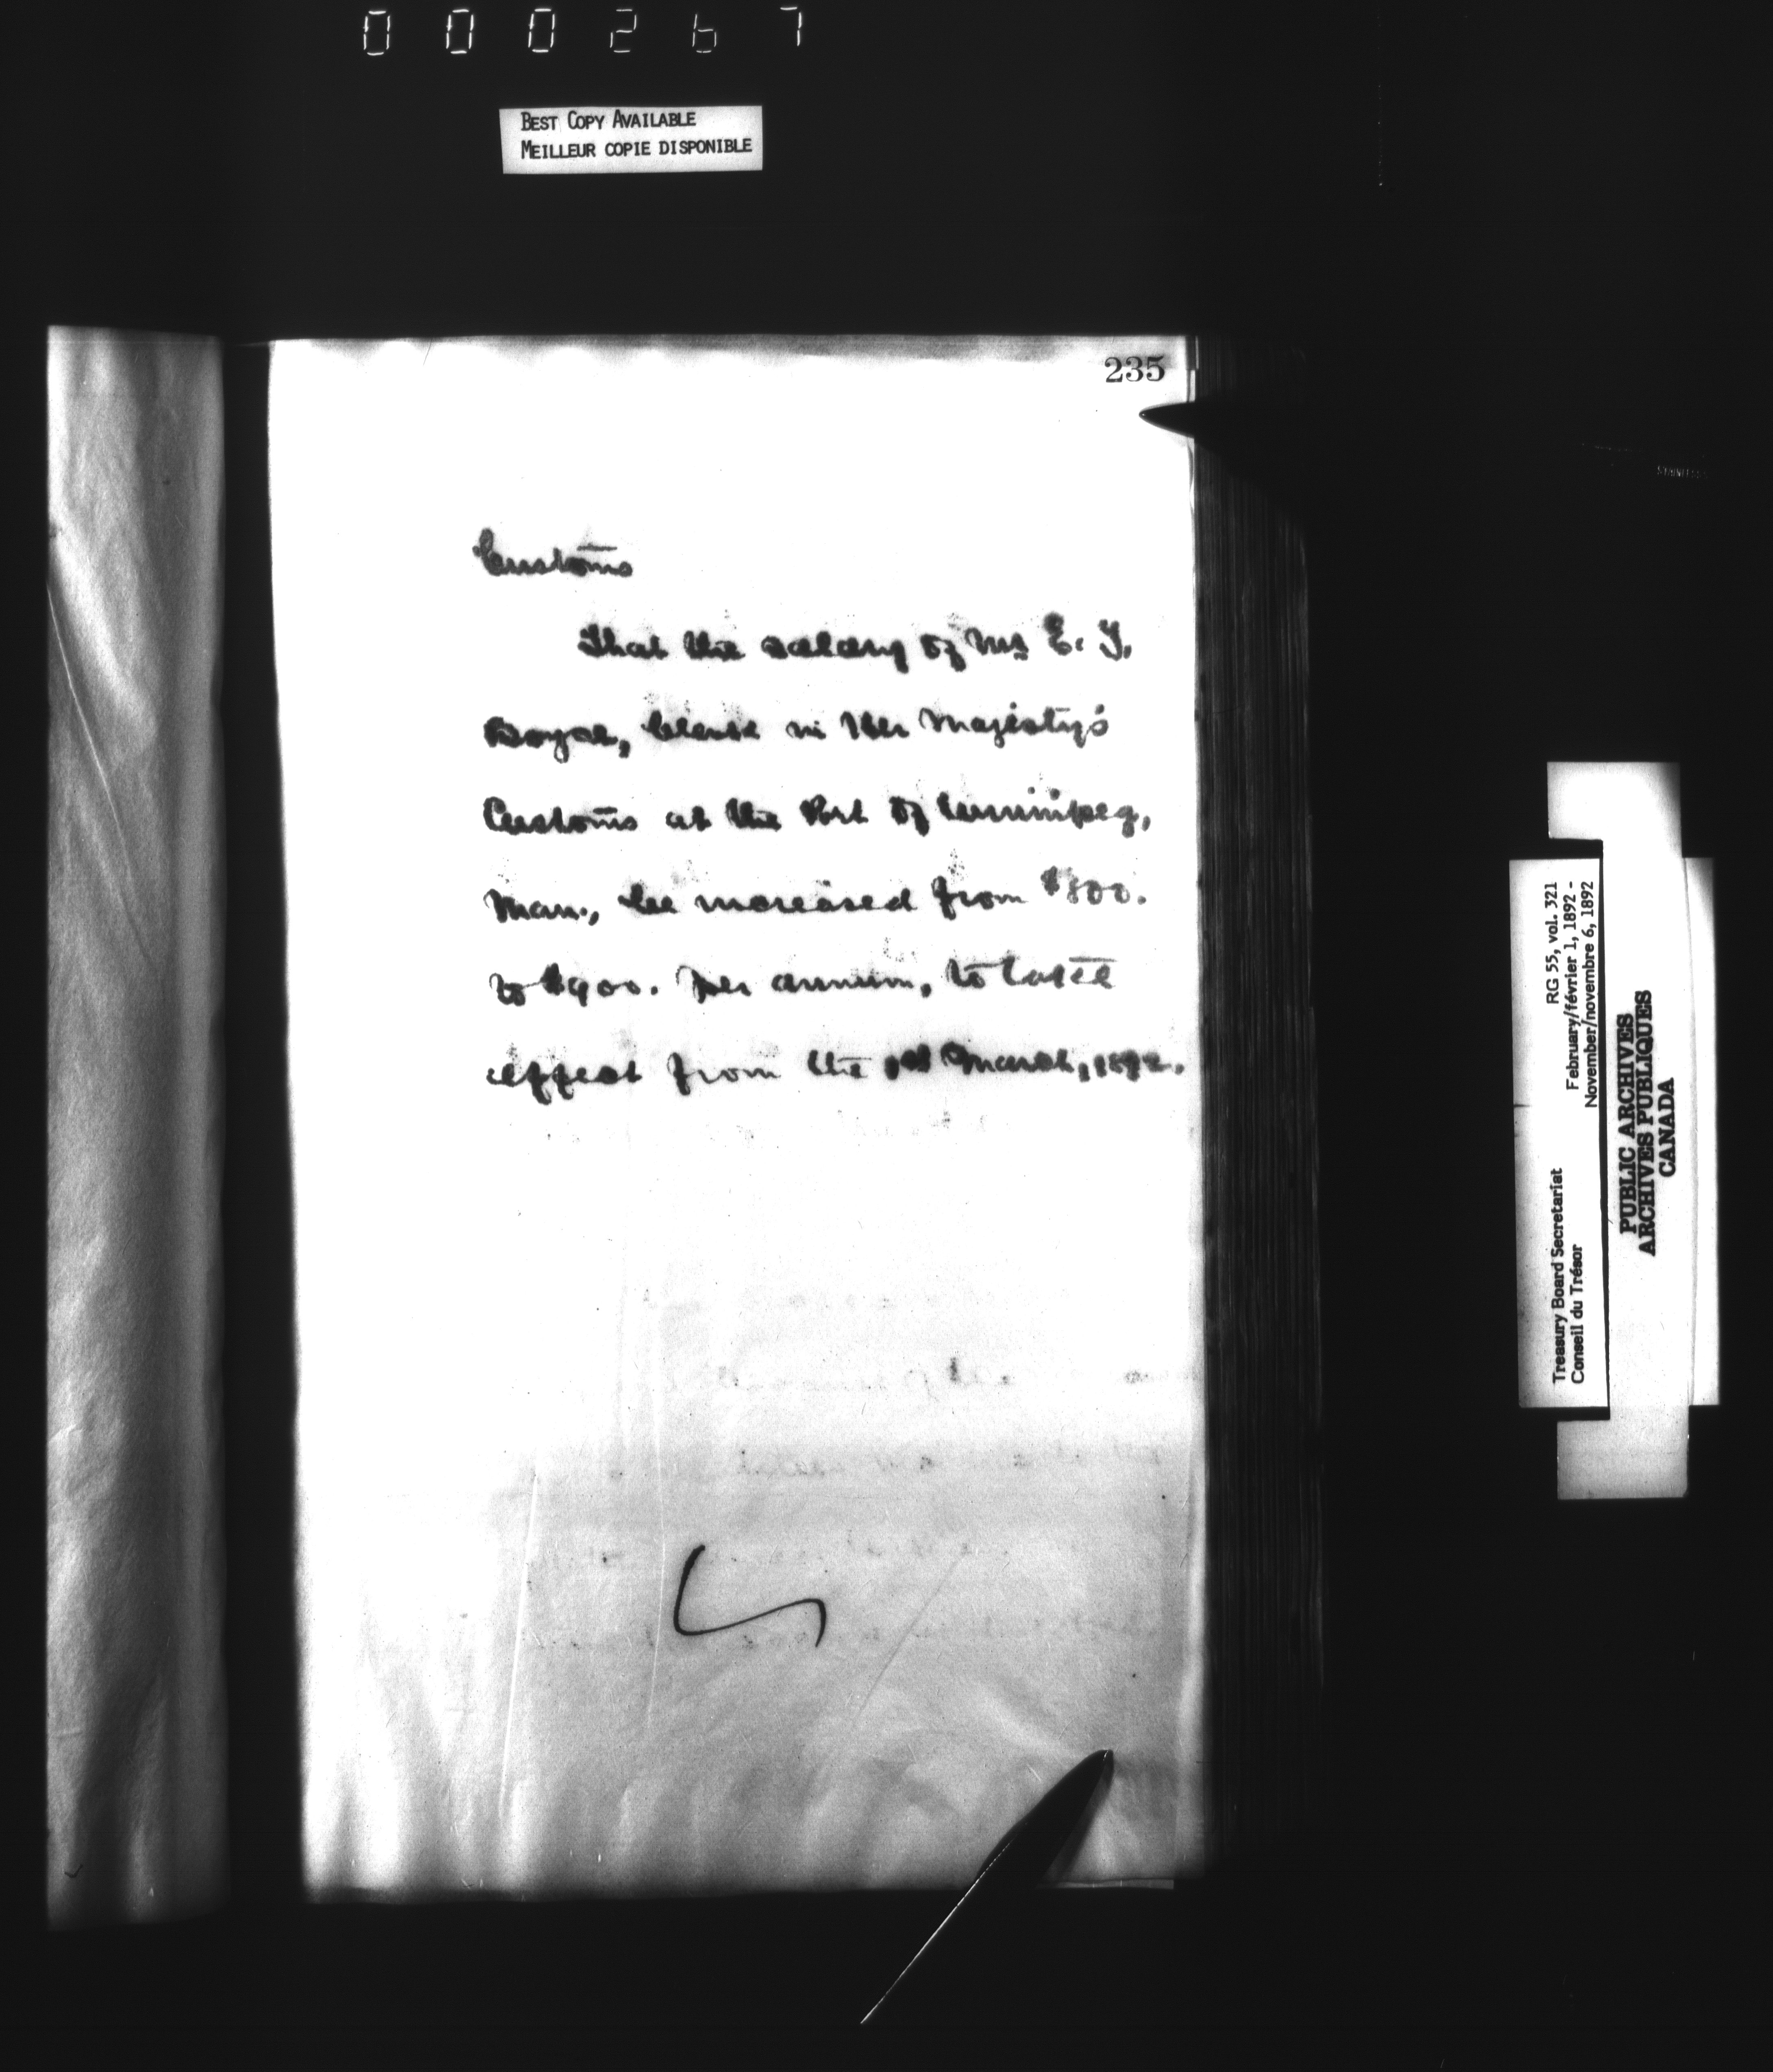 000267
BEST COPY AVAILABLE
MEILLEUR COPIE DISPONIBLE
235
Customs
That the salary of Mr E. J.
clerk in Her Majesty's
Customs at the Port of Winnipeg,
Man., be increased from $800.
to $900. per annum, to take
effect from the 1st March, 1892.
Treasury Board Secretariat RG 55, vol. 321
Conseil du Trésor February/février 1, 1892 -
November/novembre 6, 1892
PUBLIC ARCHIVES
ARCHIVES PUBLIQUES
CANADA